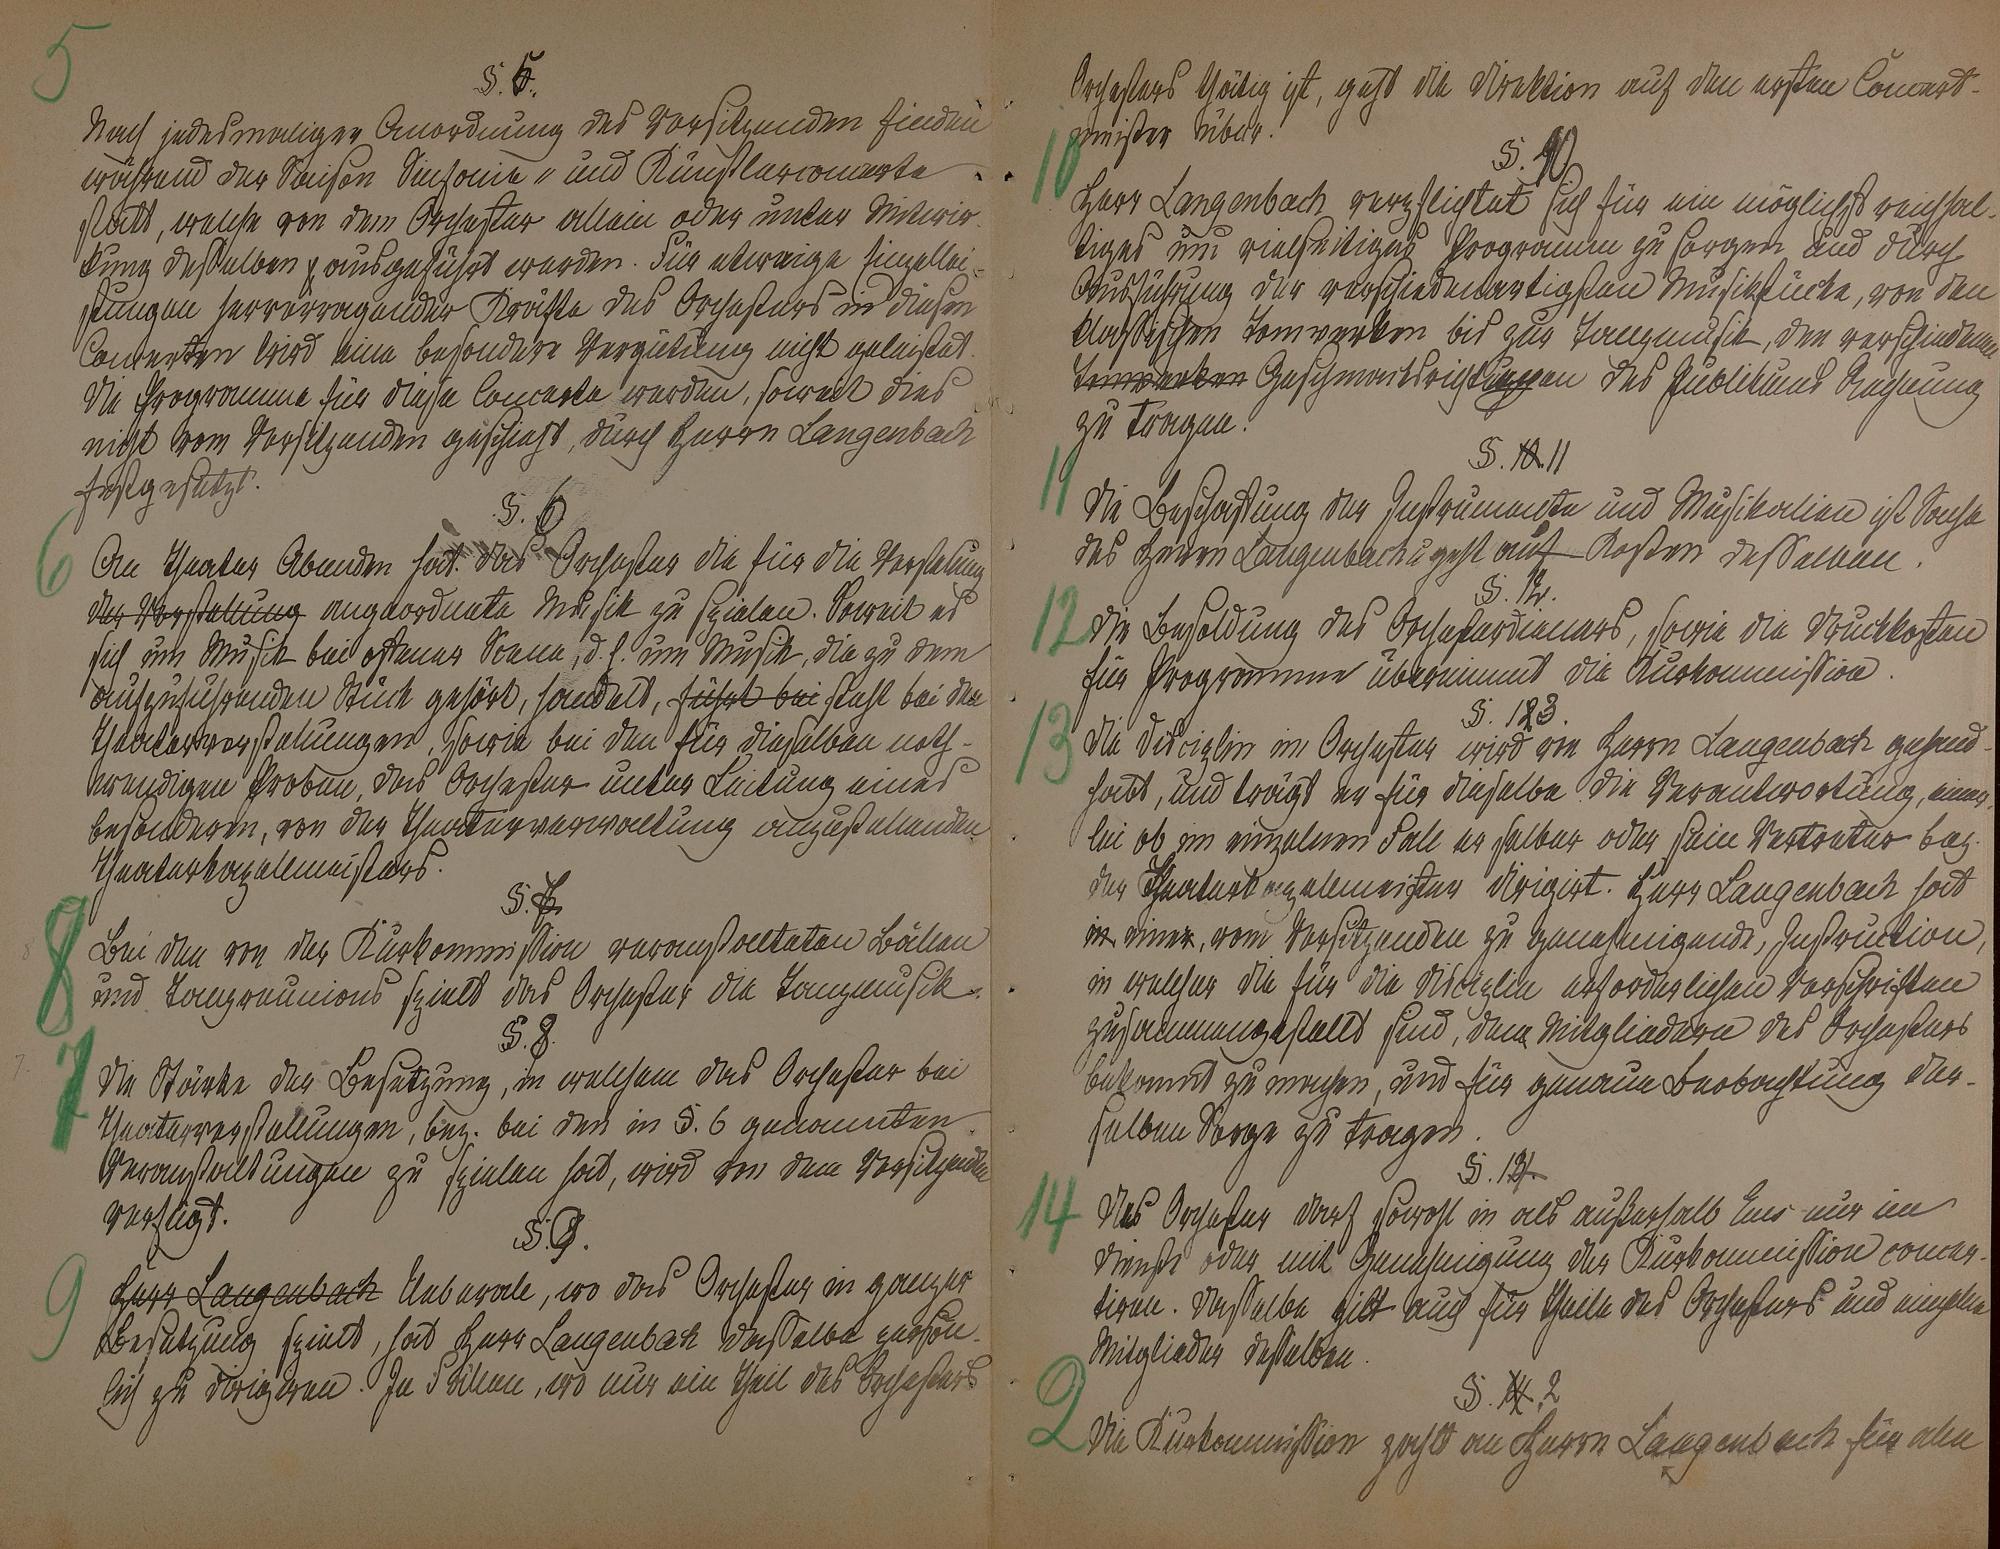 5
§. 5.
Nach jedesmaliger Anordnung des Vorsitzenden finden
während der Saison Sinfonie- und Künstlerconcerte
statt, welche von dem Orchester allein oder unter Mitwir-
kung desselben ausgeführt werden. Für etwaige Einzellei-
stungen hervorragender Kräfte des Orchesters in diesen
Concerten wird eine besondere Vergütung nicht geleistet.
Die Programme für diese Concerte werden, soweit dies
nicht vom Vorsitzenden geschieht, durch Herrn Langenbach
festgesetzt.
§. 6
6
An Theater Abenden hat das Orchester die für die Vorstellung
der Vorstellung angeordnete Musik zu spielen. Soweit es
sich um Musik bei offener Scene, d. h. um Musik, die zu dem
aufzuführenden Stück gehört, handelt, führt bei steht bei den
Theatervorstellungen, sowie bei den für dieselben noth-
wendigen Proben, das Orchester unter Leitung eines
besonderen, von der Theaterverwaltung anzustellenden
Theaterkapellmeisters.
§. 7.
8
Bei den von der Kurkommission veranstalteten Bällen
und Tanzreunions spielt das Orchester die Tanzmusik.
§. 8.
7
Die Stärke der Besetzung, in welchem das Orchester bei
Theatervorstellungen, bez. bei den in §. 6 genannten
Veranstaltungen zu spielen hat, wird von dem Vorsitzenden
verfügt.
§. 9.
9
Herr Langenbach Ueberall, wo das Orchester in ganzer
Besetzung spielt, hat Herr Langenbach dasselbe persön-
lich zu dirigiren. In Fällen, wo nur ein Theil des Orchesters
Orchesters thätig ist, geht die Direktion auf den ersten Concert-
meister über.
§. 10
10
Herr Langenbach verpflichtet sich für ein möglichst reichhal-
tiges um vielseitiges Programm zu sorgen und durch
Ausführung der verschiedenartigsten Musikstücke, von den
klassischen Tonwerken bis zur Tanzmusik, den verschiedenen
Tonwerken Geschmacksrichtungen des Publikums Rechnung
zu tragen.
§. 10. 11
11
Die Beschaffung der Instrumente und Musikalien ist Sache
des Herrn Langenbach u geht auf Kosten desselben.
§. 12.
12
Die Besoldung des Orchesterdieners, sowie die Druckkosten
für Programme übernimmt die Kurkommission.
§. 123.
13
Die Disciplin im Orchester wird von Herrn Langenbach gehand-
habt, und trägt er für dieselbe die Verantwortung, einer-
lei ob im einzelnen Fall er selber oder sein Vertreter bez.
der Theaterkapellmeister dirigirt. Herr Langenbach hat
in einer, vom Vorsitzenden zu genehmigende, Instruction,
in welcher die für die Disciplin erforderlichen Vorschriften
zusammengestellt sind, den Mitgliedern des Orchesters
bekannt zu machen, und für genaue Beobachtung der-
selben Sorge zu tragen.
§. 134.
14
Das Orchester darf sowohl in als außerhalb Ems nur im
Dienste oder mit Genehmigung der Kurkommission concer-
tiren. Dasselbe gilt auch für Theile des Orchesters und einzelne
Mitglieder desselben.
§. 14. 2
2
Die Kurkommission zahlt an Herrn Langenbach für alle